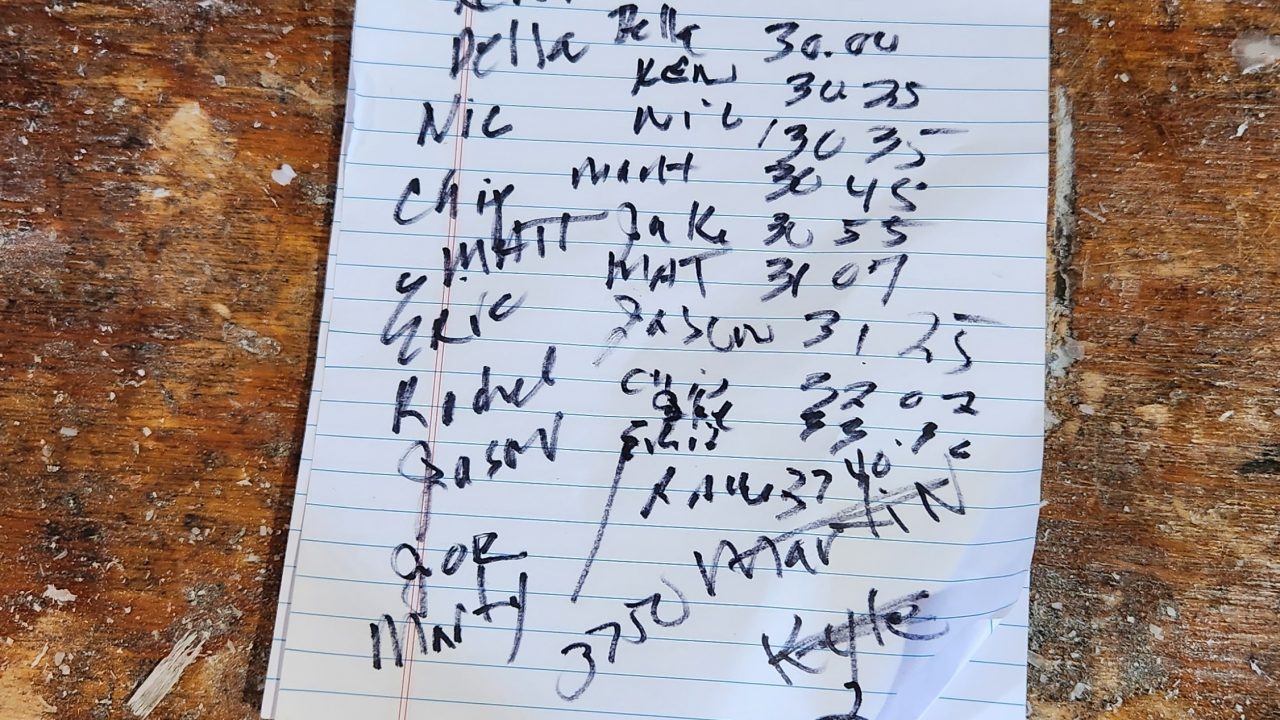 Della Della 30.00
KEN 30 25
Nic Nic 130 35
Chip 30 45
MATT Jake 30 55
MAT 31 07
ERIC Jason 31 25
Rachel Chip 32 02
Jason 33
37 40
Martin
JOE
Marty 3750
Kyle